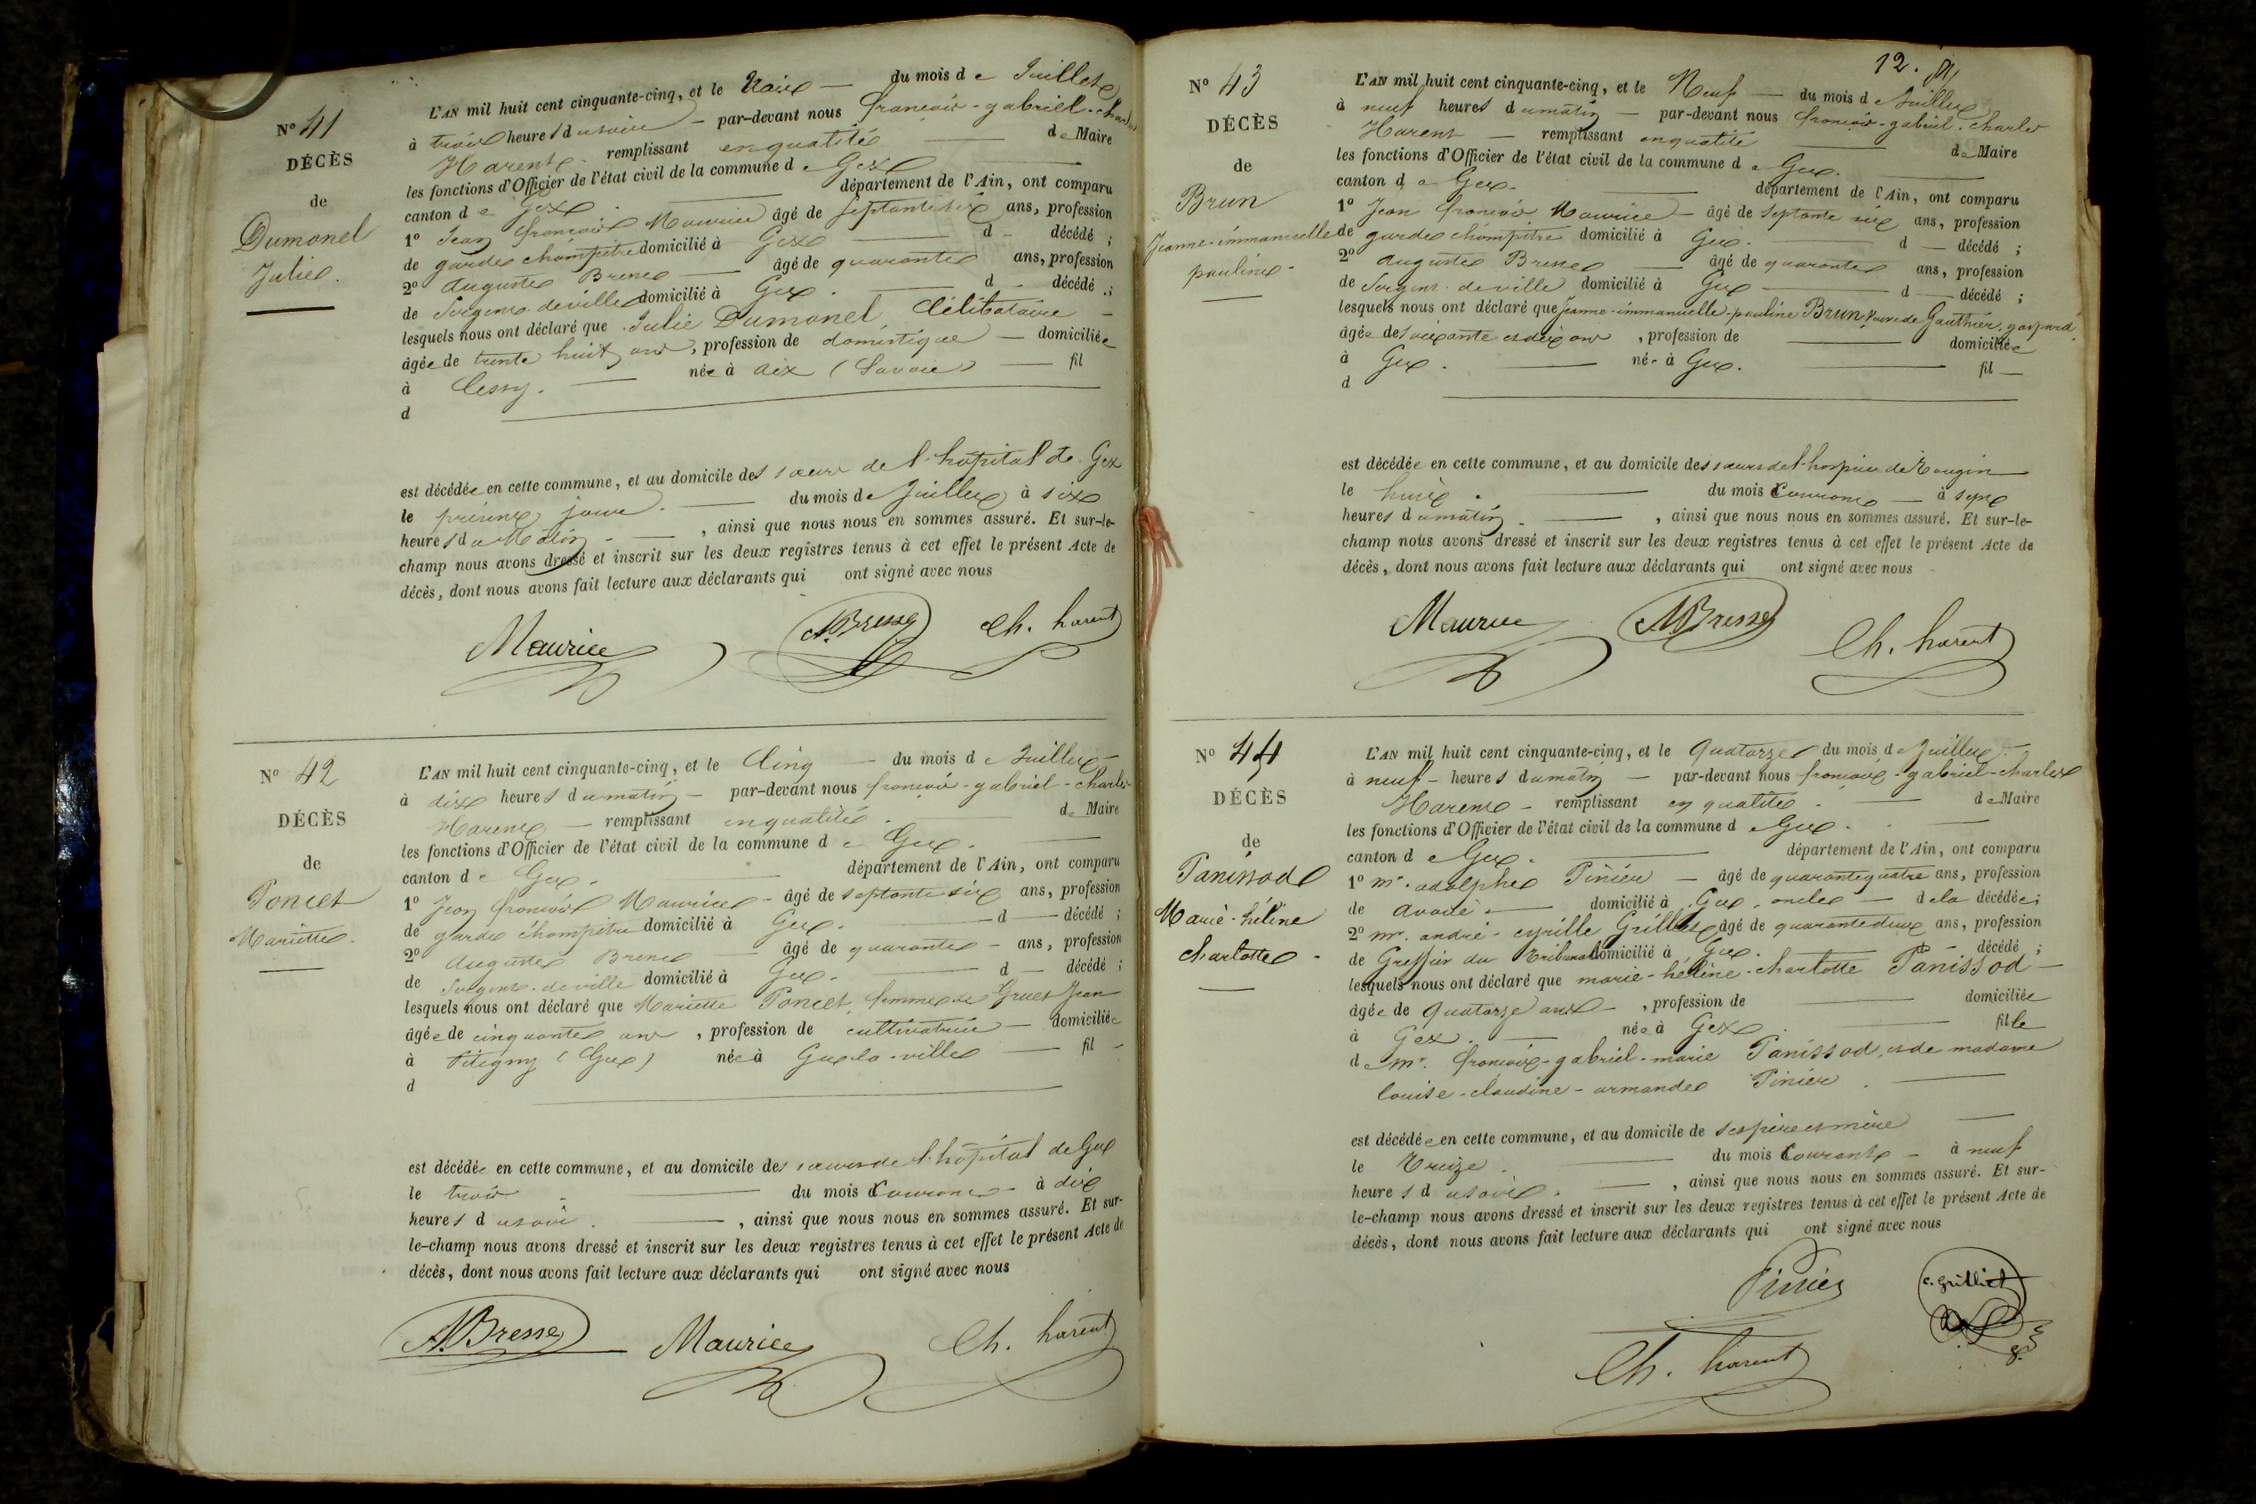 N° 41
DÉCÈS
de
Dumonel
Julie.
L'AN mil huit cent cinquante-cinq, et le trois — du mois de Juillet
à trois heures du soir — par-devant nous françois-gabriel-charles
Harent remplissant en qualité — de Maire
les fonctions d'Officier de l'état civil de la commune de Gex
canton de Gex. — département de l'Ain, ont comparu
1° Jean françois Maurice âgé de septante six ans, profession
de garde champêtre domicilié à Gex — d — décédé ;
2° Auguste Bresse — âgé de quarante ans, profession
de Sergent de ville domicilié à Gex. — d — décédé ;
lesquels nous ont déclaré que Julie Dumonel, Célibataire —
âgée de trente huit ans, profession de domestique — domiciliée
à Cessy. — née à aix (Savoie) — fil
d
est décédée en cette commune, et au domicile des sœurs de l'hôpital de Gex
le présent jour. — du mois de Juillet à six
heures du Matin — , ainsi que nous nous en sommes assuré. Et sur-le-
champ nous avons dressé et inscrit sur les deux registres tenus à cet effet le présent Acte de
décès, dont nous avons fait lecture aux déclarants qui ont signé avec nous
Maurice A. Bresse Ch. harent
N° 42
DÉCÈS
de
Poncet
Mariette.
L'AN mil huit cent cinquante-cinq, et le Cinq — du mois de Juillet
à dix heures du matin — par-devant nous françois-gabriel-charles
Harent — remplissant en qualité. — de Maire
les fonctions d'Officier de l'état civil de la commune de Gex. —
canton de Gex. — département de l'Ain, ont comparu
1° Jean françois Maurice — âgé de septante six ans, profession
de garde champêtre domicilié à Gex. — d — décédé ;
2° Auguste Bresse — âgé de quarante — ans, profession
de Sergent de ville domicilié à Gex. — d — décédé ;
lesquels nous ont déclaré que Mariette Poncet, femme de Gruet Jean
âgée de cinquante ans, profession de cultivatrice — domiciliée
à Pitigny (Gex) née à Gex-la-ville — fil —
d
est décédée en cette commune, et au domicile des sœurs de l'hôpital de Gex
le trois — du mois Courant — à dix
heures du soir. — , ainsi que nous nous en sommes assuré. Et sur-
le-champ nous avons dressé et inscrit sur les deux registres tenus à cet effet le présent Acte de
décès, dont nous avons fait lecture aux déclarants qui ont signé avec nous
A. Bresse Maurice Ch. harent
12.
N° 43
DÉCÈS
de
Brun
Jeanne-immanuelle
pauline —
L'AN mil huit cent cinquante-cinq, et le Neuf — du mois de Juillet
à neuf heures du matin — par-devant nous françois-gabriel-charles
Harent — remplissant en qualité — de Maire
les fonctions d'Officier de l'état civil de la commune de Gex. —
canton de Gex. — département de l'Ain, ont comparu
1° Jean françois Maurice — âgé de septante six ans, profession
de garde champêtre domicilié à Gex. — d — décédé ;
2° auguste Bresse — âgé de quarante ans, profession
de Sergent de ville domicilié à Gex — d — décédé ;
lesquels nous ont déclaré que Jeanne-immanuelle-pauline Brun, veuve de Gauthier, gaspard,
âgée de soixante et dix ans, profession de — domiciliée
à Gex. — née à Gex. — fil —
d
est décédée en cette commune, et au domicile des sœurs de l'hospice de Tougin
le huit. — du mois Courant — à sept
heures du matin. — , ainsi que nous nous en sommes assuré. Et sur-le-
champ nous avons dressé et inscrit sur les deux registres tenus à cet effet le présent Acte de
décès, dont nous avons fait lecture aux déclarants qui ont signé avec nous
Maurice A. Bresse
Ch. harent
N° 44
DÉCÈS
de
Panissod
Marie-hélène
charlotte —
L'AN mil huit cent cinquante-cinq, et le Quatorze du mois de Juillet
à neuf — heures du matin — par-devant nous françois-gabriel-charles
Harent — remplissant en qualité. — de Maire
les fonctions d'Officier de l'état civil de la commune de Gex. —
canton de Gex. — département de l'Ain, ont comparu
1° mr. adolphe Pinier — âgé de quarante quatre ans, profession
de avoué — domicilié à Gex, oncle — de la décédée ;
2° mr. andré-cyrille Grilliet âgé de quarante deux ans, profession
de Greffier du tribunal domicilié à Gex. — d — décédé ;
lesquels nous ont déclaré que marie-hélène-charlotte Panissod —
âgée de quatorze ans — , profession de — domiciliée
à Gex. — née à Gex. — fille
de mr. françois-gabriel-marie Panissod, et de madame
louise-claudine-armande Pinier. —
est décédée en cette commune, et au domicile de ses père et mère —
le Treize. — du mois Courant — à neuf
heures du soir. — , ainsi que nous nous en sommes assuré. Et sur-
le-champ nous avons dressé et inscrit sur les deux registres tenus à cet effet le présent Acte de
décès, dont nous avons fait lecture aux déclarants qui ont signé avec nous
Pinier C. Grilliet
Ch. harent